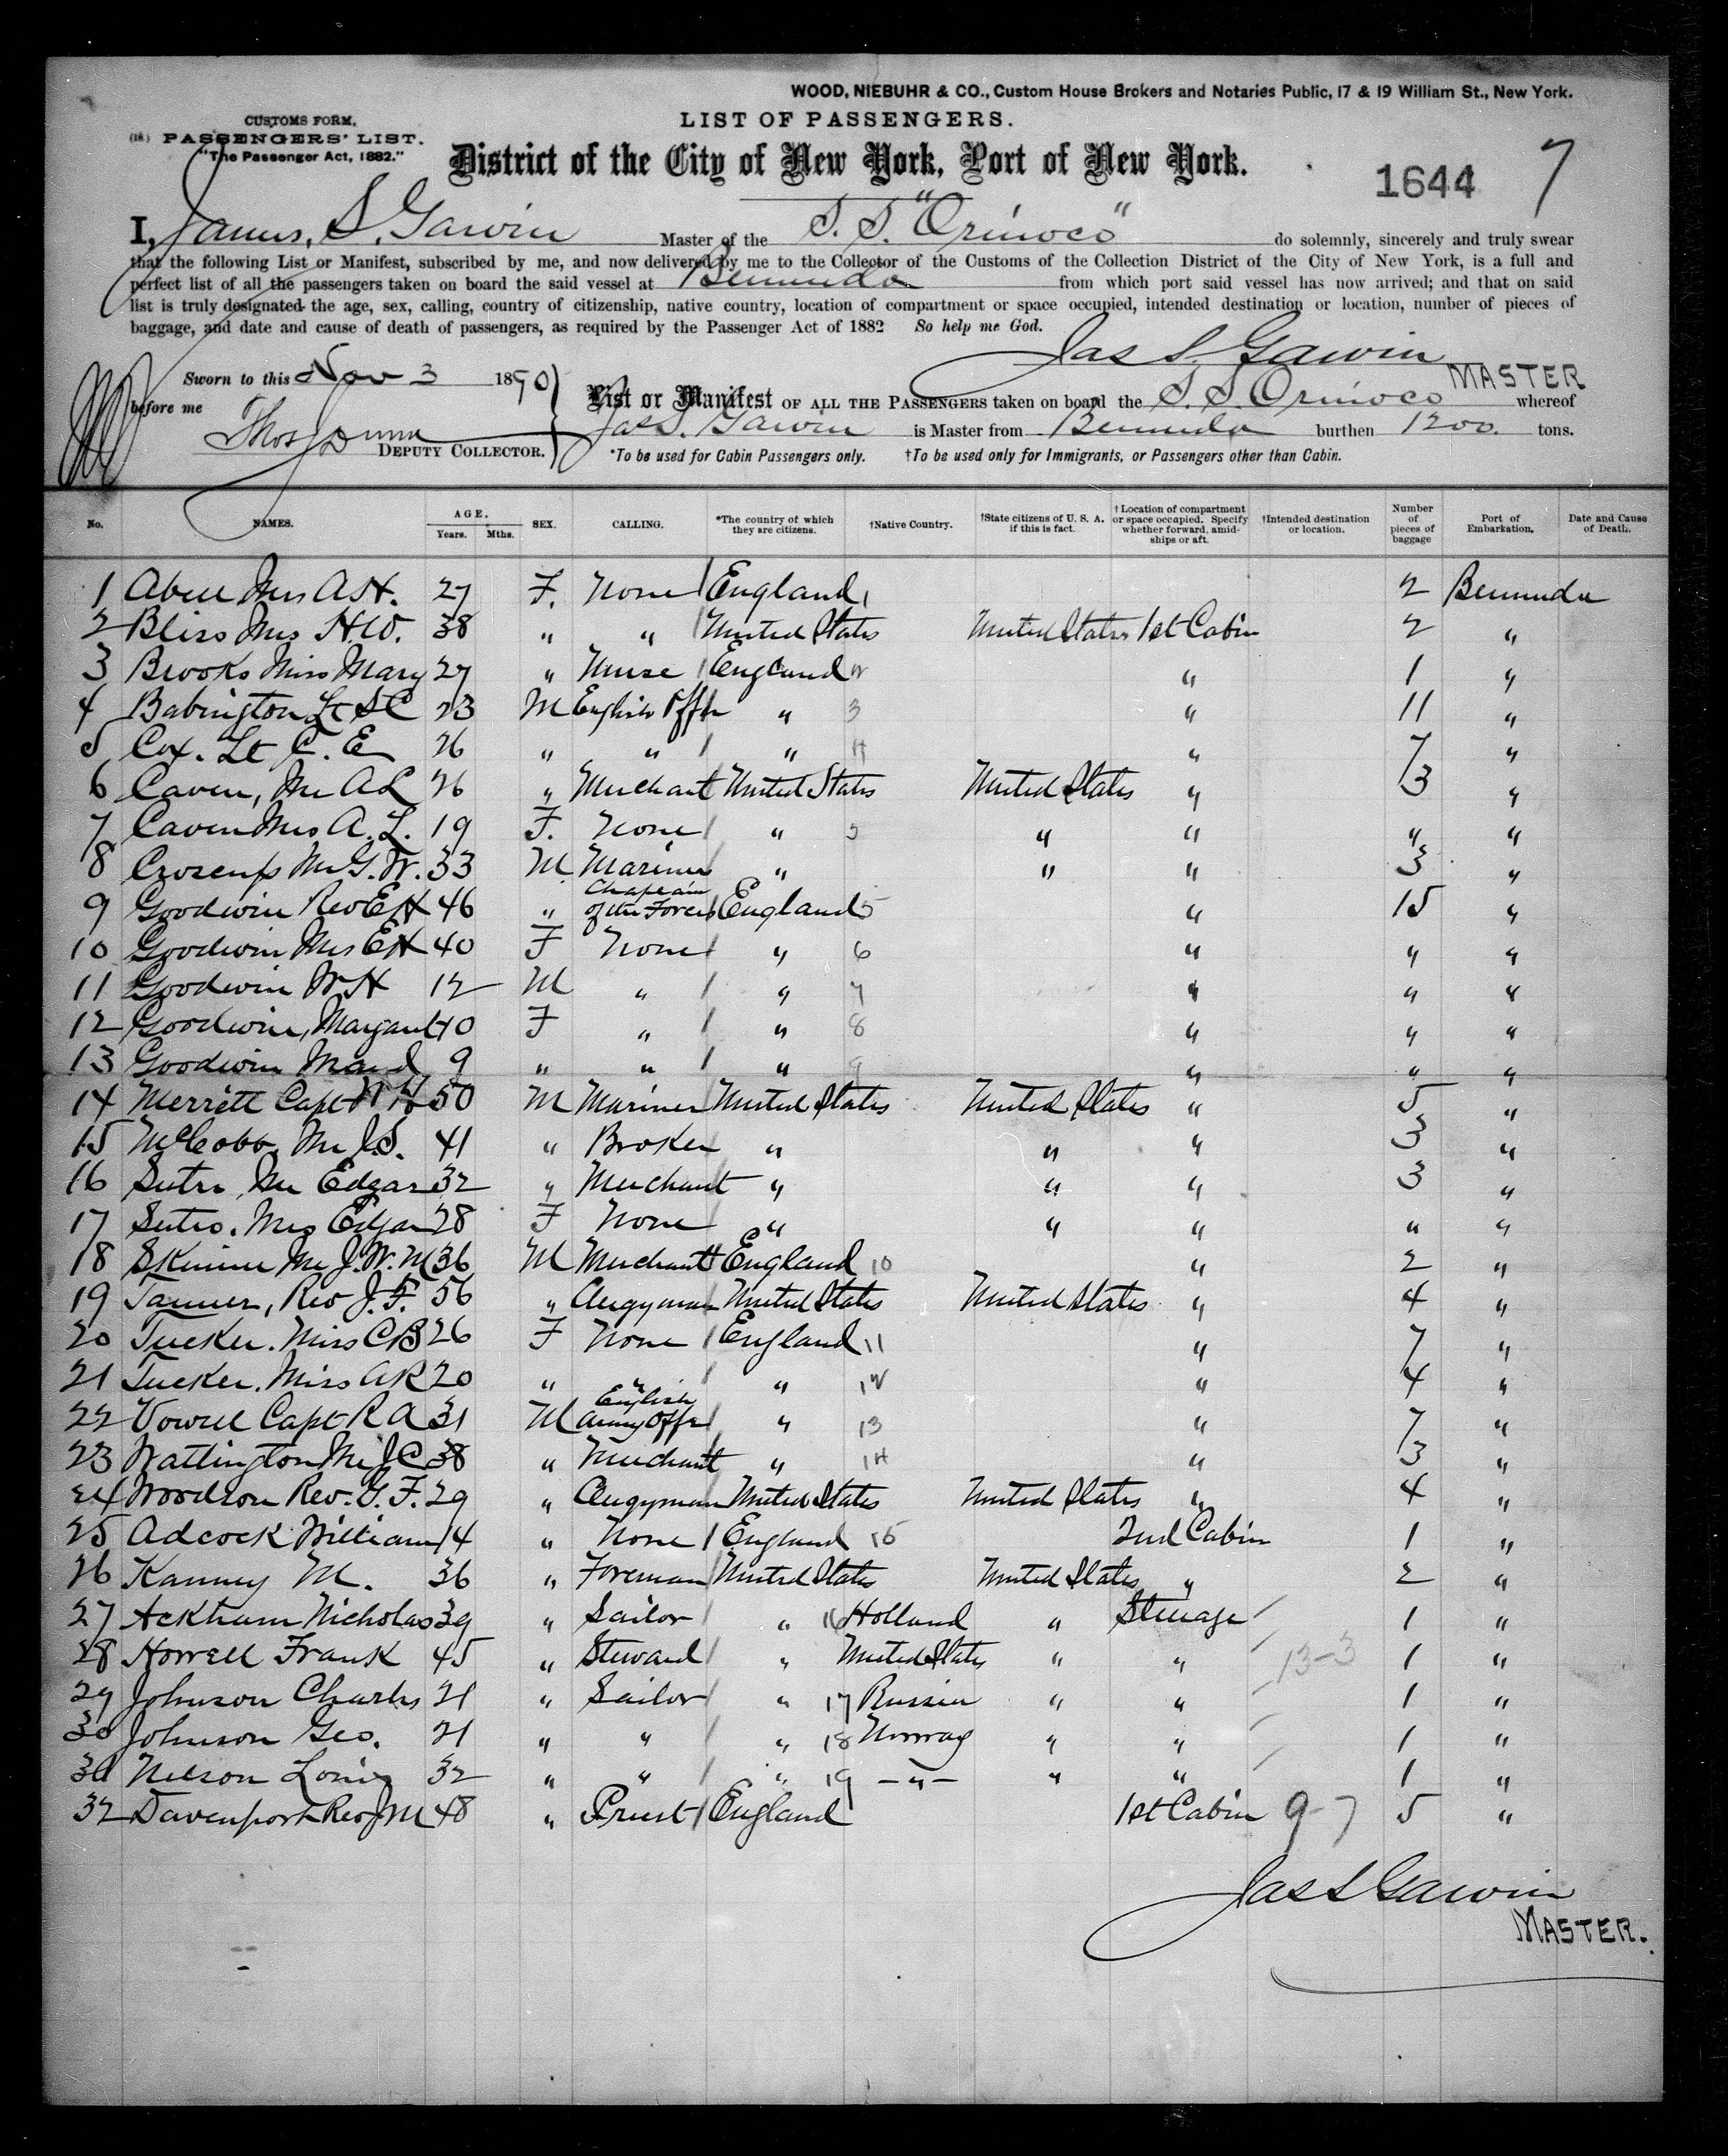 WOOD, NIEBUHR & CO., Custom House Brokers and Notaries Public, 17 & 19 William St., New York.
CUSTOMS FORM,
LIST OF PASSENGERS.
(18.) PASSENGERS' LIST.
"The Passenger Act, 1882."
District of the City of New York, Port of New York.
1644 7
I, James. S. Garvin Master of the S. S. "Orinoco" do solemnly, sincerely and truly swear
that the following List or Manifest, subscribed by me, and now delivered by me to the Collector of the Customs of the Collection District of the City of New York, is a full and
perfect list of all the passengers taken on board the said vessel at Bermuda from which port said vessel has now arrived; and that on said
list is truly designated the age, sex, calling, country of citizenship, native country, location of compartment or space occupied, intended destination or location, number of pieces of
baggage, and date and cause of death of passengers, as required by the Passenger Act of 1882 So help me God.
Jas S. Garvin
MASTER
Sworn to this Nov 3 1890
before me
List or Manifest OF ALL THE PASSENGERS taken on board the S. S. Orinoco whereof
Thos Dunn
Jas S. Garvin is Master from Bermuda burthen 1200. tons.
DEPUTY COLLECTOR.
*To be used for Cabin Passengers only. †To be used only for Immigrants, or Passengers other than Cabin.
No. NAMES. AGE. Years. Mths. SEX. CALLING. *The country of which they are citizens. †Native Country. †State citizens of U. S. A. if this is fact. †Location of compartment or space occupied. Specify whether forward, amidships or aft. †Intended destination or location. Number of pieces of baggage Port of Embarkation. Date and Cause of Death.
1 Mrs A H. 27 F. None England 1 2 Bermuda
2 Bliss Mrs H.W. 38 " " United States United States 1st Cabin 2 "
3 Brooks Miss Mary 27 " Nurse England 2 " 1 "
4 Babington Lt S C 23 M English Offr " 3 " 11 "
5 Cox. Lt C. E 26 " " " 4 " 7 "
6 Caven, Mr A L 26 " Merchant United States United States " 3 "
7 Caven Mrs A. L. 19 F. None " 5 " " " "
8 Croscup Mr G. W. 33 M Mariner " " " 3 "
9 Goodwin Rev E H 46 " Chaplain of the Forces England 5 " 15 "
10 Goodwin Mrs E H 40 F None " 6 " " "
11 Goodwin W H 12 M " " 7 " " "
12 Goodwin, Margaret 10 F " " 8 " " "
13 Goodwin Maud 9 " " " 9 " " "
14 Merrett Capt W H 50 M Mariner United States United States " 5 "
15 McCobb, Mr J.S. 41 " Broker " " " 3 "
16 Sutro, Mr Edgar 32 " Merchant " " " 3 "
17 Sutro. Mrs Edgar 28 F None " " " " "
18 Skinner Mr J. W. M 36 M Merchant England 10 " 2 "
19 Tanner, Rev J. F. 56 " Clergyman United States United States " 4 "
20 Tucker. Miss C B 26 F None England 11 " 7 "
21 Tucker. Miss A R 20 " " " 12 " 4 "
22 Vowell Capt R A 31 M English Army Offr " 13 " 7 "
23 Watlington Mr J C 38 " Merchant " 14 " 3 "
24 Woodson Rev. G. F. 29 " Clergyman United States United States " 4 "
25 Adcock William 14 " None England 15 2nd Cabin 1 "
26 Kanney M. 36 " Foreman United States United States " 2 "
27 Ackham Nicholas 39 " Sailor " 16 Holland " Steerage 1 "
28 Howell Frank 45 " Steward " United States " " 13-3 1 "
29 Johnson Charles 21 " Sailor " 17 Russia " " 1 "
30 Johnson Geo. 21 " " " 18 Norway " " 1 "
31 Nelson Louis 32 " " " 19 -"- " " 1 "
32 Davenport Rev J M 48 " Priest England 1st Cabin 9-7 5 "
Jas S Garvin
MASTER.